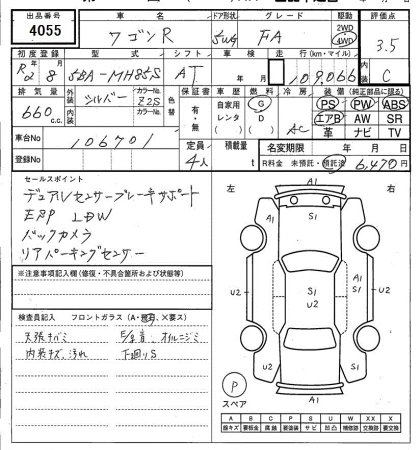 出品番号 車名 ドア形状 グレード 駆動 評価点
4055 ワゴンR 5WG FA 2WD 4WD 3.5
初度登録 型式 シフト 車検 走行(km・マイル) 内装
R2 8月 5BA-MH85S AT 年 月 109,066 C
排気量 外装 シルバー カラーNo. Z2S 色替 保証書 車歴 燃料 冷房 装備(純正部品に限る)
660 c.c. 内装 カラーNo. 有・無 自家用 レンタ G D AC PS PW ABS
エアB AW SR
革 ナビ TV
車台No. 106701 定員 4人 積載量 t 名変期限 年 月 日
登録No. R料金 未預託・預託済 6,470円
セールスポイント
デュアルセンサーブレーキサポート
ESP LDW
バックカメラ
リアパーキングセンサー
※注意事項記入欄(修復・不具合箇所および状態等)
検査員記入 フロントガラス(A・飛石、X要ス)
天張ナバミ
内装キズ、汚れ 下廻りS
左 右
A1
S1
A1
U2 S1 U2
U2 S1
S1
A1
P
スペア
A B C P S U W X XX
線キズ 要板金 腐蝕 要塗装 サビ 凹凸 補修跡 要交換